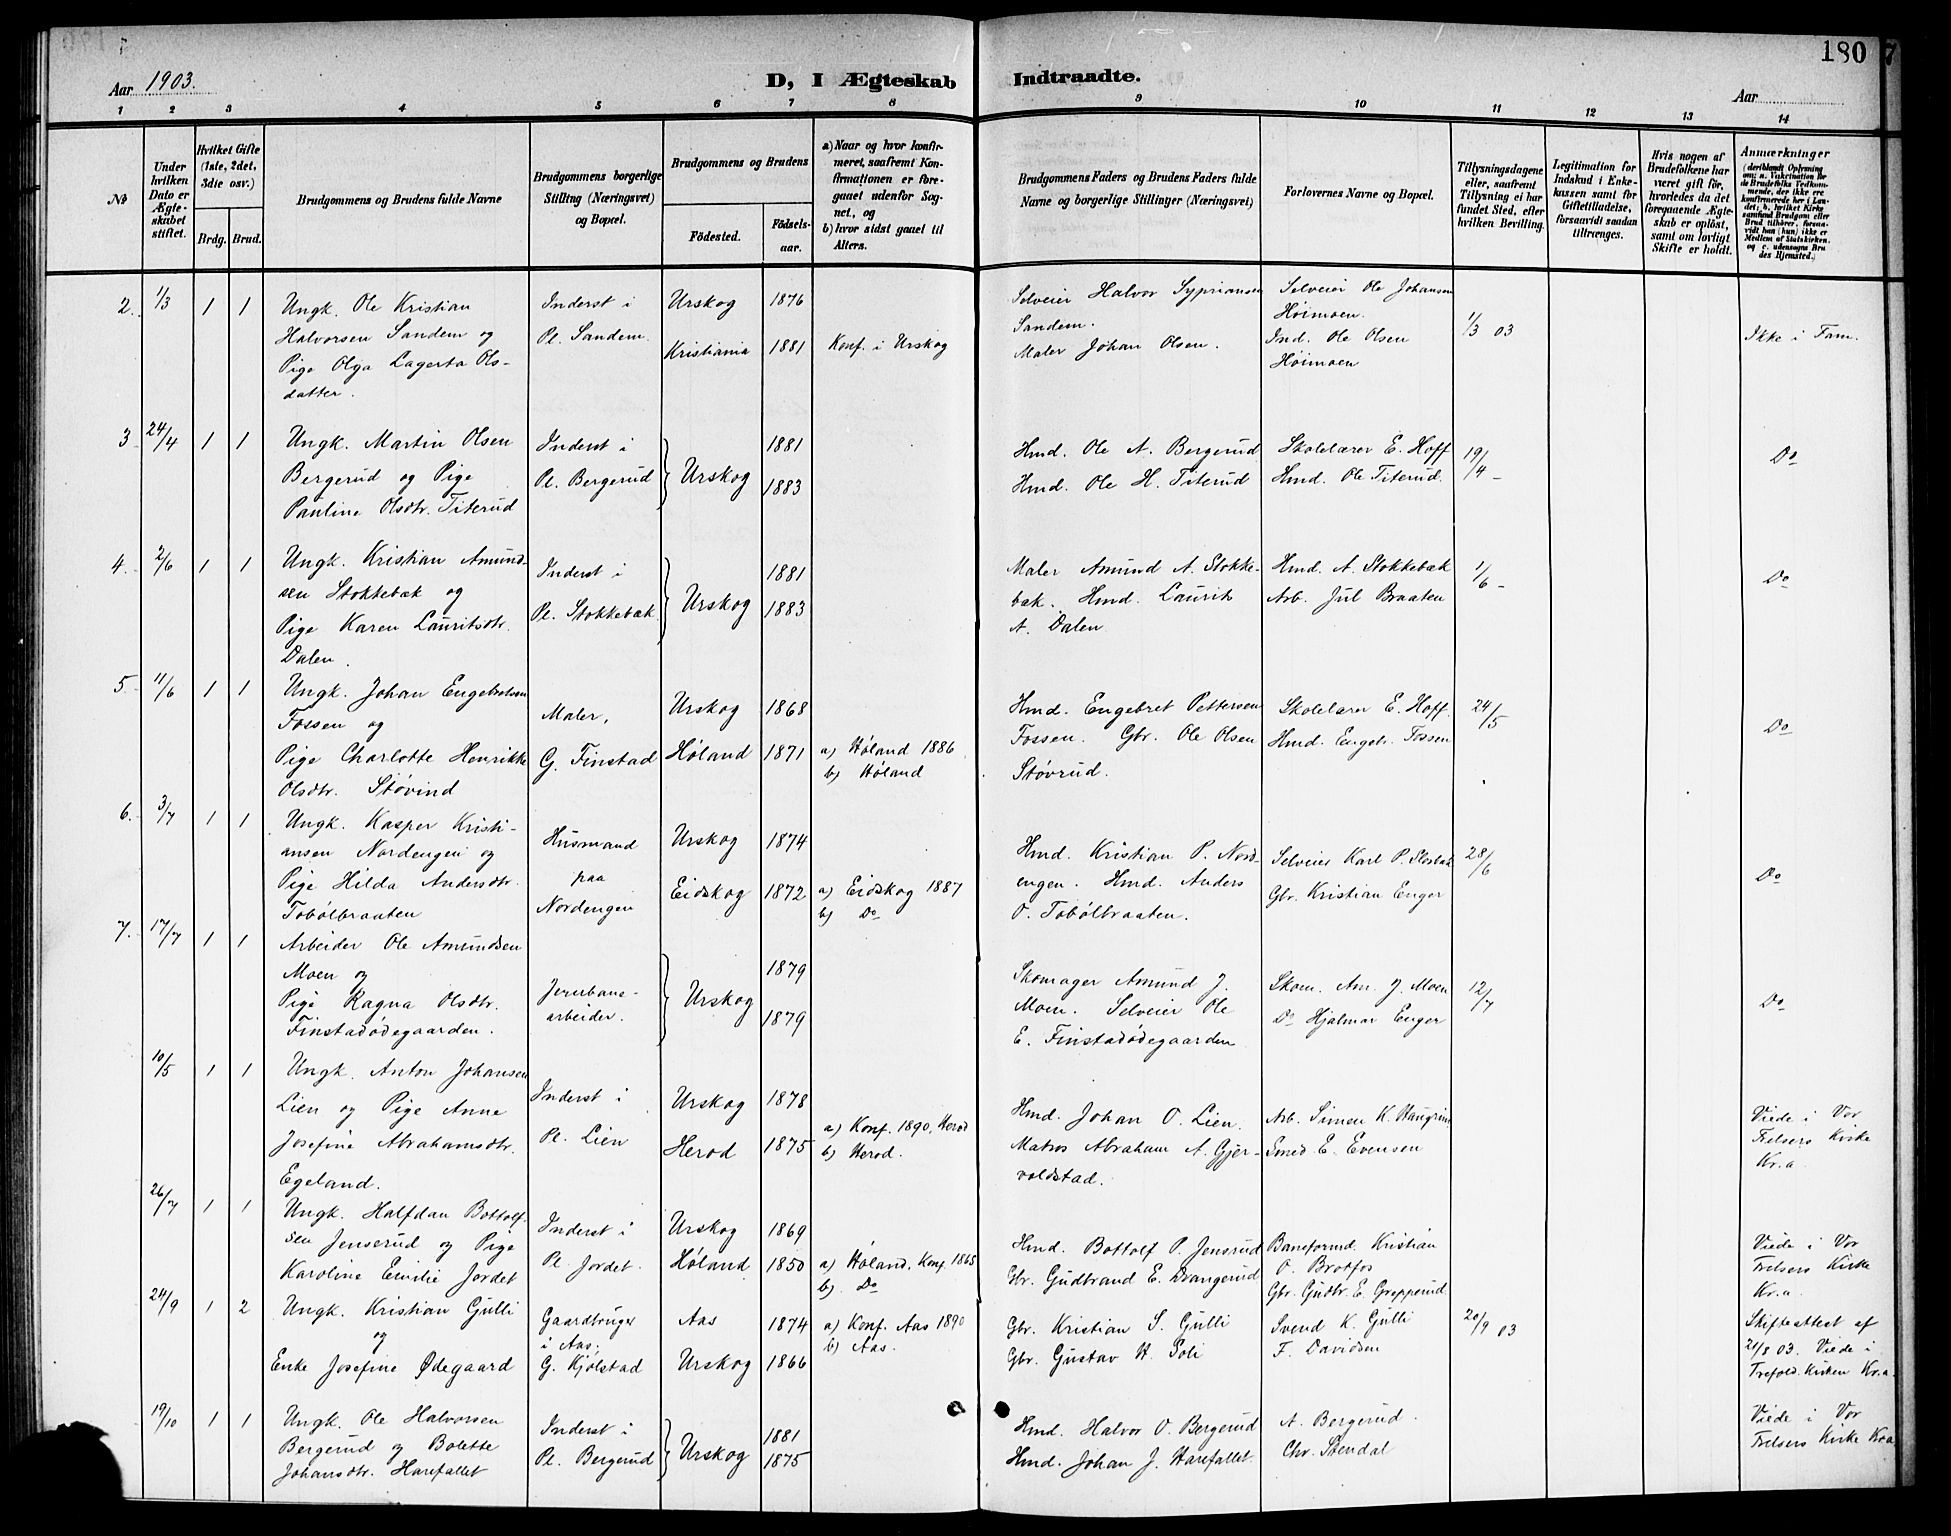 180
Aar 1903.
D, I Ægteskab Indtraadte.
Aar
1 2 3 4 5 6 7 8 9 10 11 12 13 14
No
Under hvilken Dato er Ægteskabet stiftet.
Hvilket Gifte (1ste, 2det, 3die osv.)
Brdg. Brud.
Brudgommens og Brudens fulde Navne
Brudgommens borgerlige Stilling (Næringsvet) og Bopæl.
Brudgommens og Brudens
Fødested.
Fødselsaar.
a) Naar og hvor konfirmeret, saafremt Konfirmationen er foregaaet udenfor Sognet, og
b) hvor sidst gaaet til Alters.
Brudgommens Faders og Brudens Faders fulde Navne og borgerlige Stillinger (Næringsvet)
Forlovernes Navne og Bopæl.
Tillysningsdagene eller, saafremt Tillysning ei har fundet Sted, efter hvilken Bevilling.
Legitimation for Indskud i Enkekassen samt for Giftetilladelse, forsaavidt saadan tiltrænges.
Hvis nogen af Brudefolkene har været gift før, hvorledes da det foregaaende Ægteskab er opløst, samt om lovligt Skifte er holdt.
Anmærkninger
2. 1/3 1 1
Ungk. Ole Kristian
Halvorsen Sandem og
Pige Olga Lagerta Ols-
datter.
Inderst i
Pl. Sandem.
Urskog 1876
Kristiania 1881 Konf. i Urskog
Selveier Halvor Sypriansen
Sandem.
Maler Johan Olsen.
Selveier Ole Johansen
Høimoen.
Ind. Ole Olsen
Høimoen
1/3 03
Ikke i Fam.
3 24/4 1 1
Ungk. Martin Olsen
Bergerud og Pige
Pauline Olsdtr. Titerud
Inderst i
Pl. Bergerud
Urskog
1881
1883
Hmd. Ole A. Bergerud
Hmd. Ole H. Titerud
Skolelærer E. Hoff
Hmd. Ole Titerud.
19/4 -
Do
4. 2/6 1 1
Ungk. Kristian Amund-
sen Stokkebæk og
Pige Karen Lauritsdtr.
Dalen.
Inderst i
Pl. Stokkebæk
Urskog
1881
1883
Maler Amund A. Stokke-
bæk. Hmd. Laurits
A. Dalen
Hmd. A. Stokkebæk
Arb. Jul Braaten
1/6 -
Do
5. 11/6 1 1
Ungk. Johan Engebretsen
Fossen og
Pige Charlotte Henrikke
Olsdtr. Støvind
Maler,
G. Finstad
Urskog 1868
Høland 1871
a) Høland 1886
b) Høland
Hmd. Engebret Pettersen
Fossen. Gbr. Ole Olsen
Støvrud.
Skolelærer E. Hoff.
Hmd. Engebr. Fossen
24/5
Do
6. 3/7 1 1
Ungk. Kasper Kristi-
ansen Nordengen og
Pige Hilda Andersdtr.
Tobølbraaten
Husmand
paa
Nordengen
Urskog 1874
Eidskog 1872
a) Eidskog 1887
b) Do
Hmd. Kristian P. Nord-
engen. Hmd. Anders
O. Tobølbraaten.
Selveier Karl P.
Gbr. Kristian Enger
28/6
Do
7. 17/7 1 1
Arbeider Ole Amundsen
Moen og
Pige Ragna Olsdtr.
Finstadødegaarden.
Jernbane-
arbeider.
Urskog
1879
1879
Skomager Amund J.
Moen. Selveier Ole
E. Finstadødegaarden
Skom. Am. J. Moen
Do Hjalmar Enger
12/7
Do
10/5 1 1
Ungk. Anton Johansen
Lien og Pige Anne
Josefine Abrahamsdtr.
Egeland.
Inderst i
Pl. Lien
Urskog 1878
Herod 1875
a) Konf. 1890, Herod
b) Herod.
Hmd. Johan O. Lien.
Matros Abraham A. Gjer-
voldstad.
Arb. Simen K.
Smed E. Evensen
Viede i Vor
Frelsers Kirke
Kr.a.
26/7 1 1
Ungk. Halfdan Bottolf-
sen Jenserud og Pige
Karoline Emilie Jordet
Inderst i
Pl. Jordet.
Urskog 1869
Høland 1850
a) Høland, Konf. 1865
b) Do
Hmd. Bottolf P. Jensrud
Gbr. Gudbrand E. Drangerud
Baneformd. Kristian
O. Brotfos
Gbr. Gudbr. E. Grepperud
Viede i Vor
Frelsers Kirke
Kr.a.
24/9 1 2
Ungk. Kristian Gulli
og
Enke Josefine Ødegaard
Gaardbruger
i Aas,
G. Kjølstad
Aas 1874
Urskog 1866
a) Konf. Aas 1890
b) Aas.
Gbr. Kristian S. Gulli
Gbr. Gustav H. Soli
Svend K. Gulli
F. Davidsen
20/9 03
Skifteattest af
21/8 03. Viede i
Trefold. Kirken Kr.a.
19/10 1 1
Ungk. Ole Halvorsen
Bergerud og Bolette
Johansdtr. Harefallet
Inderst i
Pl. Bergerud
Urskog
1881
1875
Hmd. Halvor O. Bergerud
Hmd. Johan J. Harefallet.
A. Bergerud.
Chr. Stendal
Viede i Vor
Frelsers Kirke Kr.a